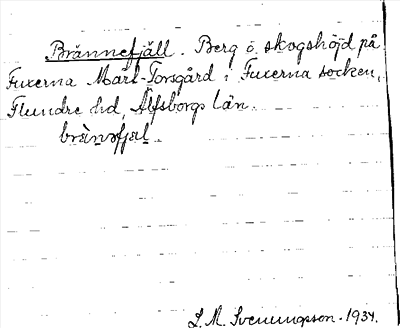 Brännefjäll. Berg o. skogshöjd på
Fuxerna Mårt-Torsgård i Fuxerna socken,
Flundre hd, Älfsborgs län.
brànəfjæl
L. M. Svenungsson. 1934.